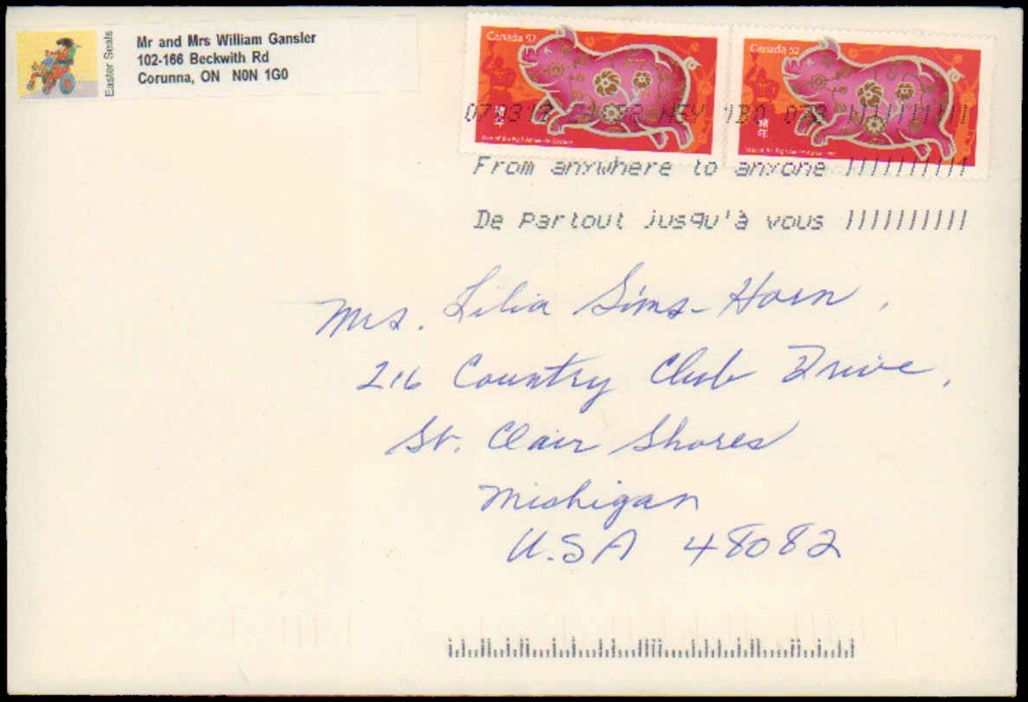 Easter Seals
Mr and Mrs William Gansler
102-166 Beckwith Rd
Corunna, ON N0N 1G0
Canada 52
Canada 52
猪年
猪年
From anywhere to anyone
De partout jusqu'à vous
Mrs. Lilia Sims-Horn,
216 Country Club Drive,
St. Clair Shores
Michigan
U.S.A 48082